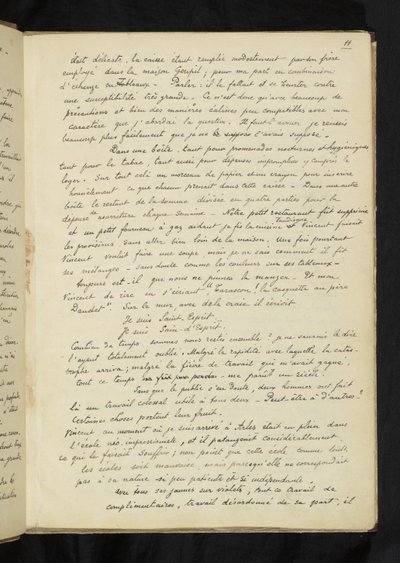 11
était délicate, la caisse étant remplie modestement par son frère
employé dans la maison Goupil; pour ma part en combinaison
d'échange en tableaux. Parler: il le fallait et se heurter contre
une susceptibilité très grande. Ce n'est donc qu'avec beaucoup de
précautions et bien des manières câlines peu compatibles avec mon
caractère que j'abordai la question. Il faut l'avouer, je réussis
beaucoup plus facilement que je ne l'avais supposé.
Dans une boîte, tant pour promenades nocturnes et hygiéniques
tant pour le tabac, tant aussi pour dépenses impromptues y compris le
loyer. Sur tout cela un morceau de papier et un crayon pour inscrire
honnêtement ce que chacun prenait dans cette caisse. Dans une autre
boîte le restant de la somme divisée en quatre parties pour la
dépense de nourriture chaque semaine. Notre petit restaurant fut supprimé
et un petit fourneau à gaz aidant je fis la cuisine tandis que Vincent faisait
les provisions sans aller bien loin de la maison. Une fois pourtant
Vincent voulut faire une soupe mais je ne sais comment il fit
ses mélanges - sans doute comme les couleurs sur ses tableaux -
toujours est-il que nous ne pûmes la manger. Et mon
Vincent de rire en s'écriant "Tarascon! la casquette au père
Daudet". Sur le mur avec de la craie il écrivit
Je suis Saint Esprit
Je suis Sain d'Esprit.
Combien de temps sommes nous restés ensemble? je ne saurais le dire
l'ayant totalement oublié. Malgré la rapidité avec laquelle la catas-
trophe arriva; malgré la fièvre de travail qui m'avait gagné,
tout ce temps me parut un siècle.
Sans que le public s'en doute, deux hommes ont fait
là un travail colossal utile à tous deux - Peut-être à d'autres?
Certaines choses portent leur fruit.
Vincent au moment où je suis arrivé à Arles était en plein dans
l'école néo-impressionniste, et il pataugeait considérablement,
ce qui le faisait souffrir; non point que cette école, comme toutes
les écoles soit mauvaise, mais parce qu'elle ne correspondait
pas à sa nature si peu patiente et si indépendante
Avec tous ses jaunes sur violets, tout ce travail de
complémentaires, travail désordonné de sa part, il